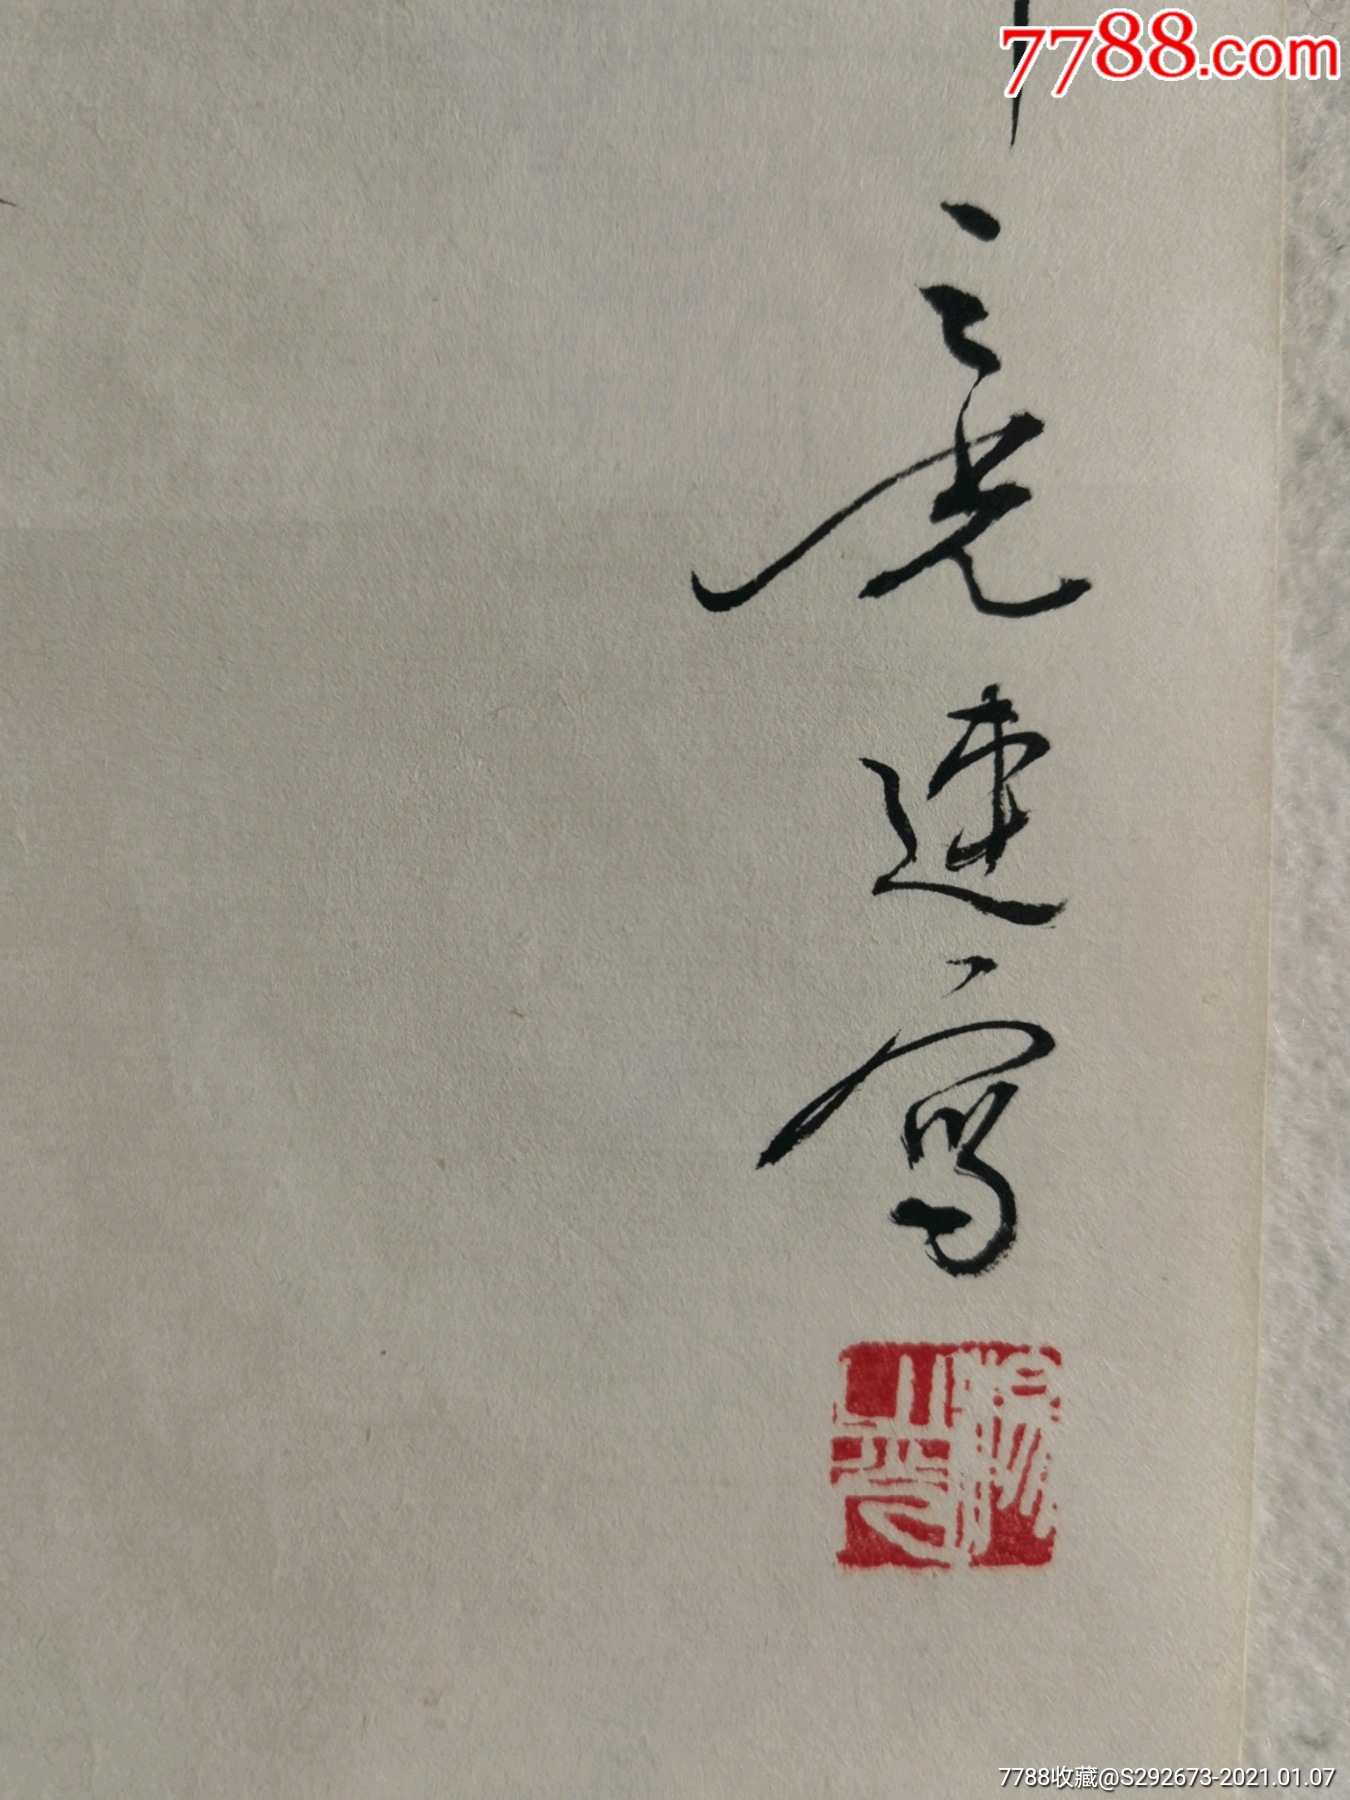 7788.com
之光速寫
楊之光
7788收藏@S292673-2021.01.07